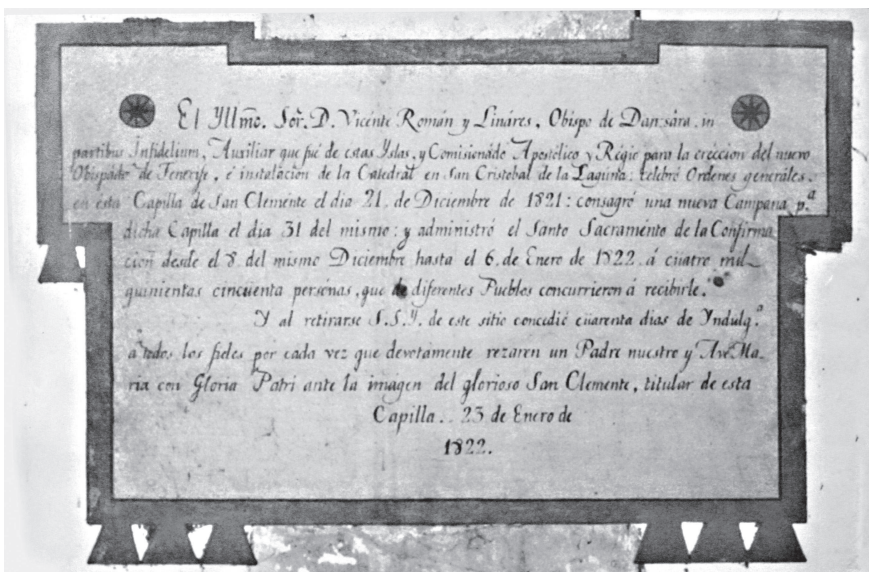 El Yllmo. Sor. D. Vicente Román y Lináres, Obispo de Dansára in
partibus Infidelium, Auxiliar que fué de estas Yslas, y Comisionado Apostólico y Régio para la ereccion del nuevo
Obispado de Tenerife, é instalacion de la Catedrál en San Cristobal de la Laguna: celebró Ordenes generáles.
en esta Capilla de San Clemente el dia 21. de Diciembre de 1821: consagró una nueva Campana p.a
dicha Capilla el dia 31 del mismo: y administró el Santo Sacraménto de la Confirma
cion desde el 8. del mismo Diciembre hasta el 6. de Enero de 1822. á cüatre mil
quinientas cincuenta persónas, que de diferentes Pueblos concurrieron á recibirle.
Y al retirarse S.S.Y. de este sitio concedió cüarenta dias de Yndulg.a
a todos los fieles por cada vez que devotamente rezaren un Padre nuestro y Ave Ma-
ria con Gloria Patri ante la imagen del glorioso San Clemente, titular de esta
Capilla.. 23 de Enero de
1822.